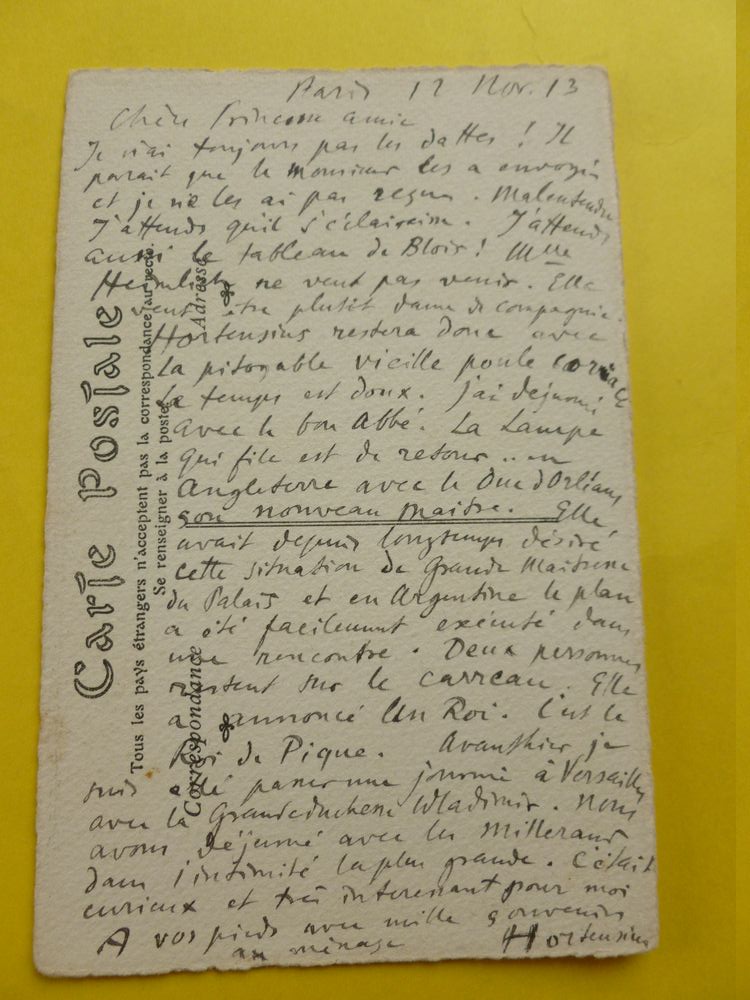 Paris 12 Nov. 13
Chère Princesse amie
Je n'ai toujours pas les dattes ! Il
parait que le monsieur les a envoyés
et je ne les ai pas reçus. Malentendu
J'attends qu'il s'éclaircisse. J'attends
aussi le tableau de Blois ! Mme
ne veut pas venir. Elle
veut être plutôt dame de compagnie.
Hortensius restera donc avec
la pitoyable vieille poule coriace
Le temps est doux. J'ai dejeuné
avec le bon Abbé. La Lampe
qui file est de retour .. en
Angleterre avec le Duc d'Orléans
son nouveau maitre. Elle
avait depuis longtemps désiré
cette situation de Grande Maitresse
du Palais et en Argentine le plan
a été facilement exécuté dans
une rencontre. Deux personnes
restent sur le carreau. Elle
a annoncé Un Roi. C'est le
Roi de Pique. Avanthier je
suis allé passer une journée à Versailles
avec la Grandeduchesse Wladimir. Nous
avons déjeuné avec les Millerand
dans l'intimité la plus grande. C'était
curieux et très interessant pour moi
A vos pieds avec mille souvenirs
au ménage Hortensius
Carte Postale
Tous les pays étrangers n'acceptent pas la correspondance au recto.
Se renseigner à la poste
Correspondance
Adresse